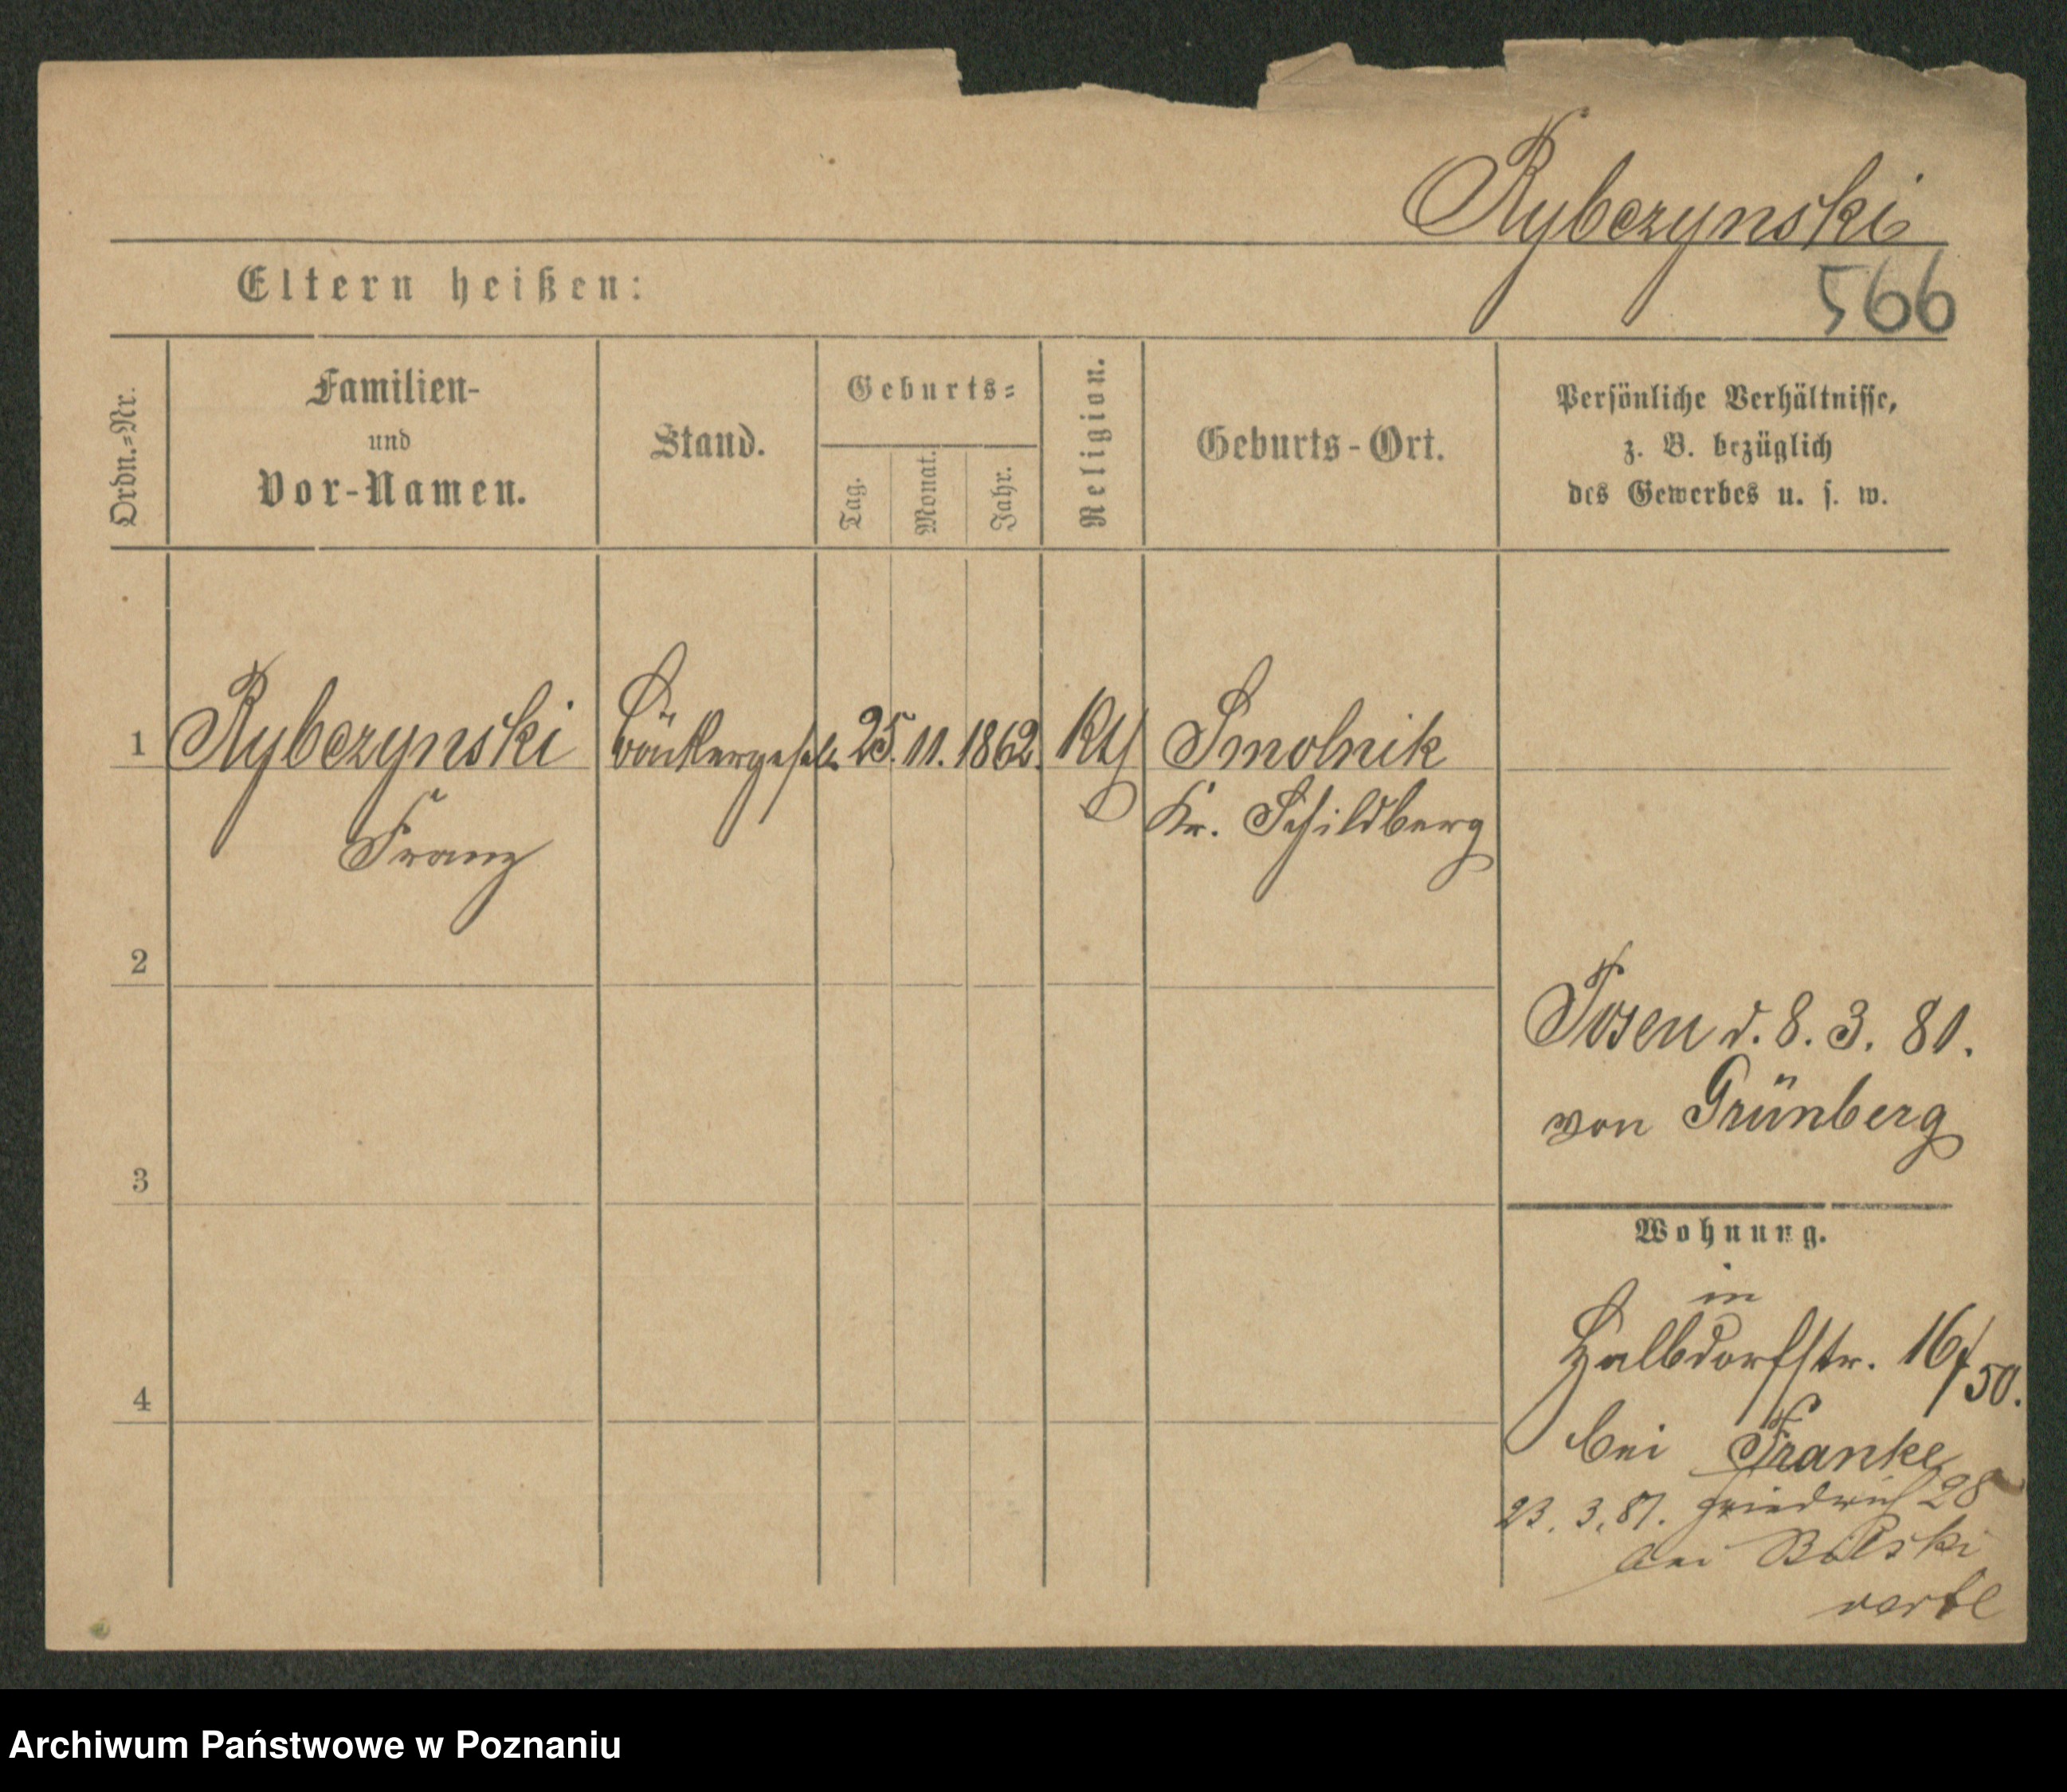 Rybczynski
Eltern heißen:
566
Ordn.=Nr.
Familien-
und
Vor-Namen.
Stand.
Geburts=
Tag.
Monat.
Jahr.
Religion.
Geburts-Ort.
Persönliche Verhältnisse,
z. B. bezüglich
des Gewerbes u. s. w.
1 Rybczynski Bäckergesell 25. 11. 1862. Kth Smolnik
Franz Kr. Schildberg
2
Posen d. 8. 3. 81.
von Grünberg
3
Wohnung.
in
Halbdorfstr. 16/50.
4
bei Franke
23. 3. 81. Friedrich 28
bei Bilski
Archiwum Państwowe w Poznaniu